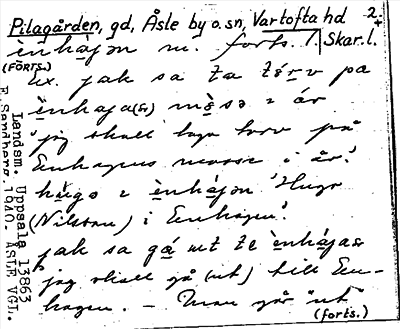 Pilagården, gd, Åsle by o. sn, Vartofta hd 2.
ènhájən m. forts. 1. Skar. l.
(FORTS.)
Ex. jak sa ta tórv pa
ènhaja(s) mèsə i år
'jag skall taga torv på
Enhagens mosse i år'.
hùgo i ènhájən 'Hugo
(Nilsson) i Enhagen'.
jak sa gá ut te ènhájas
'jag skall gå (ut) till En-
hagen. — Man går 'ut'
(forts.)
Landsm. Uppsala 13863
F. Sandberg. 1940. ÅSLE VGL.